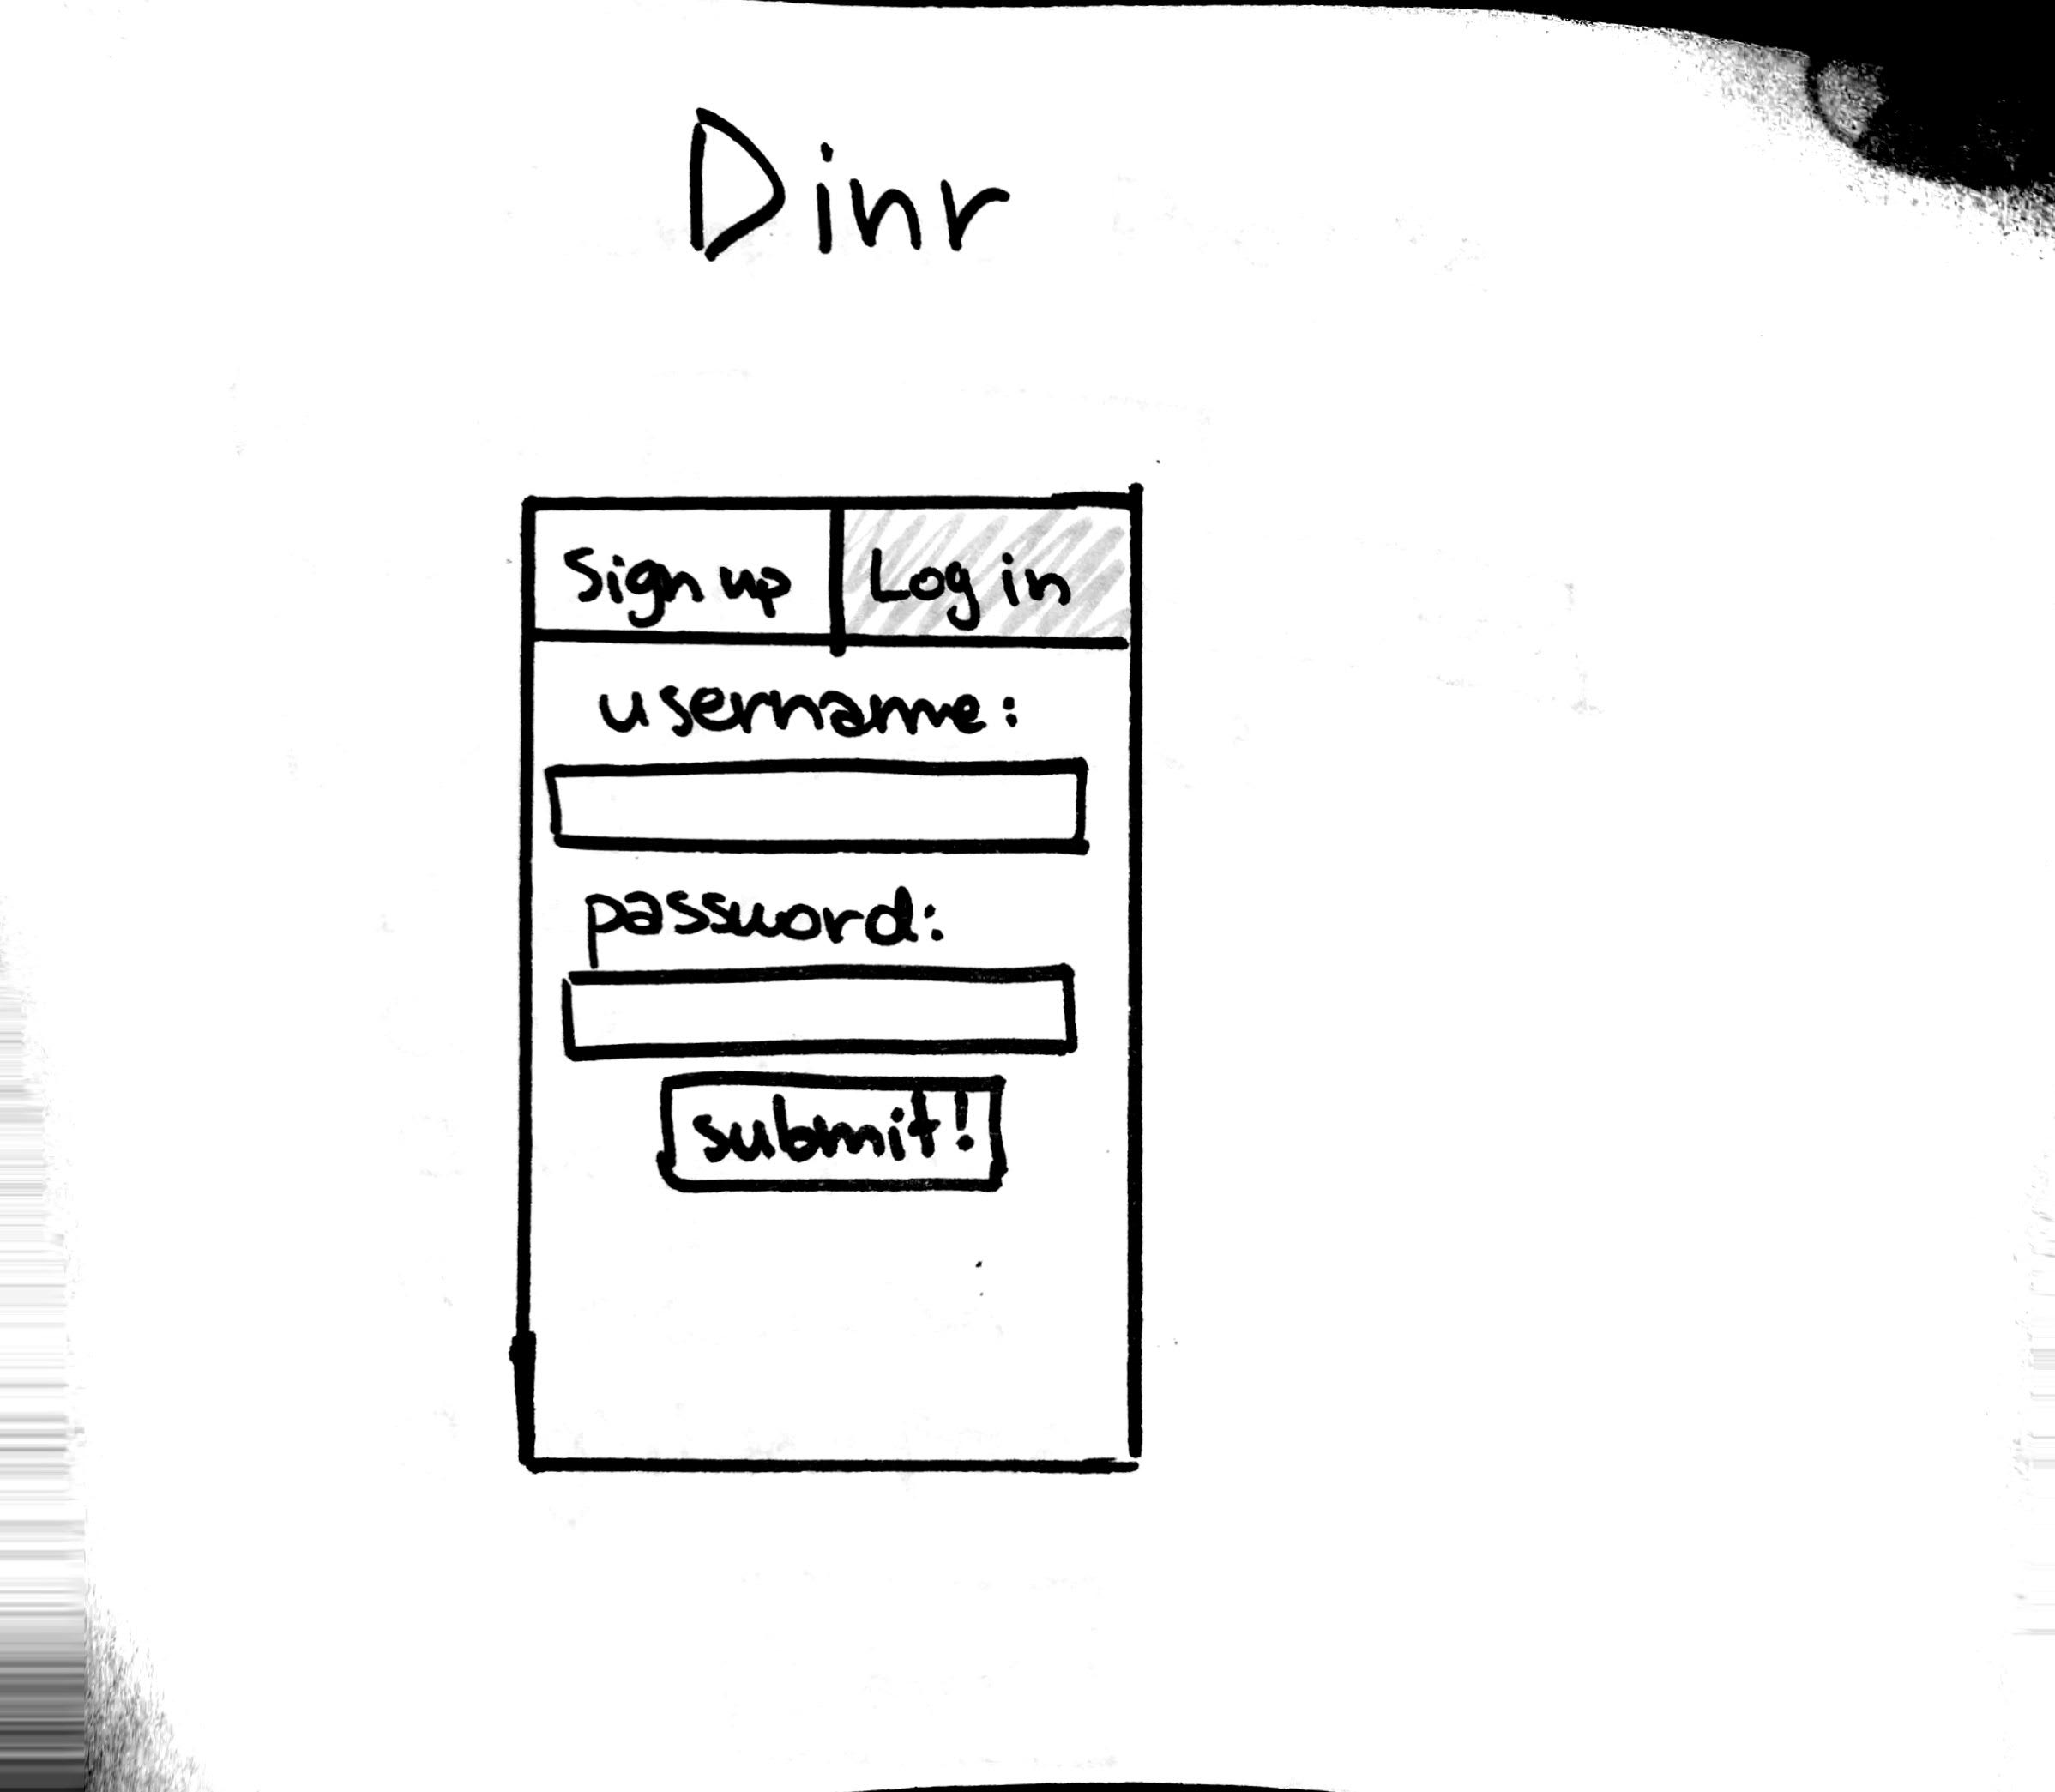 Dinr
Sign up Log in
username:
password:
submit!